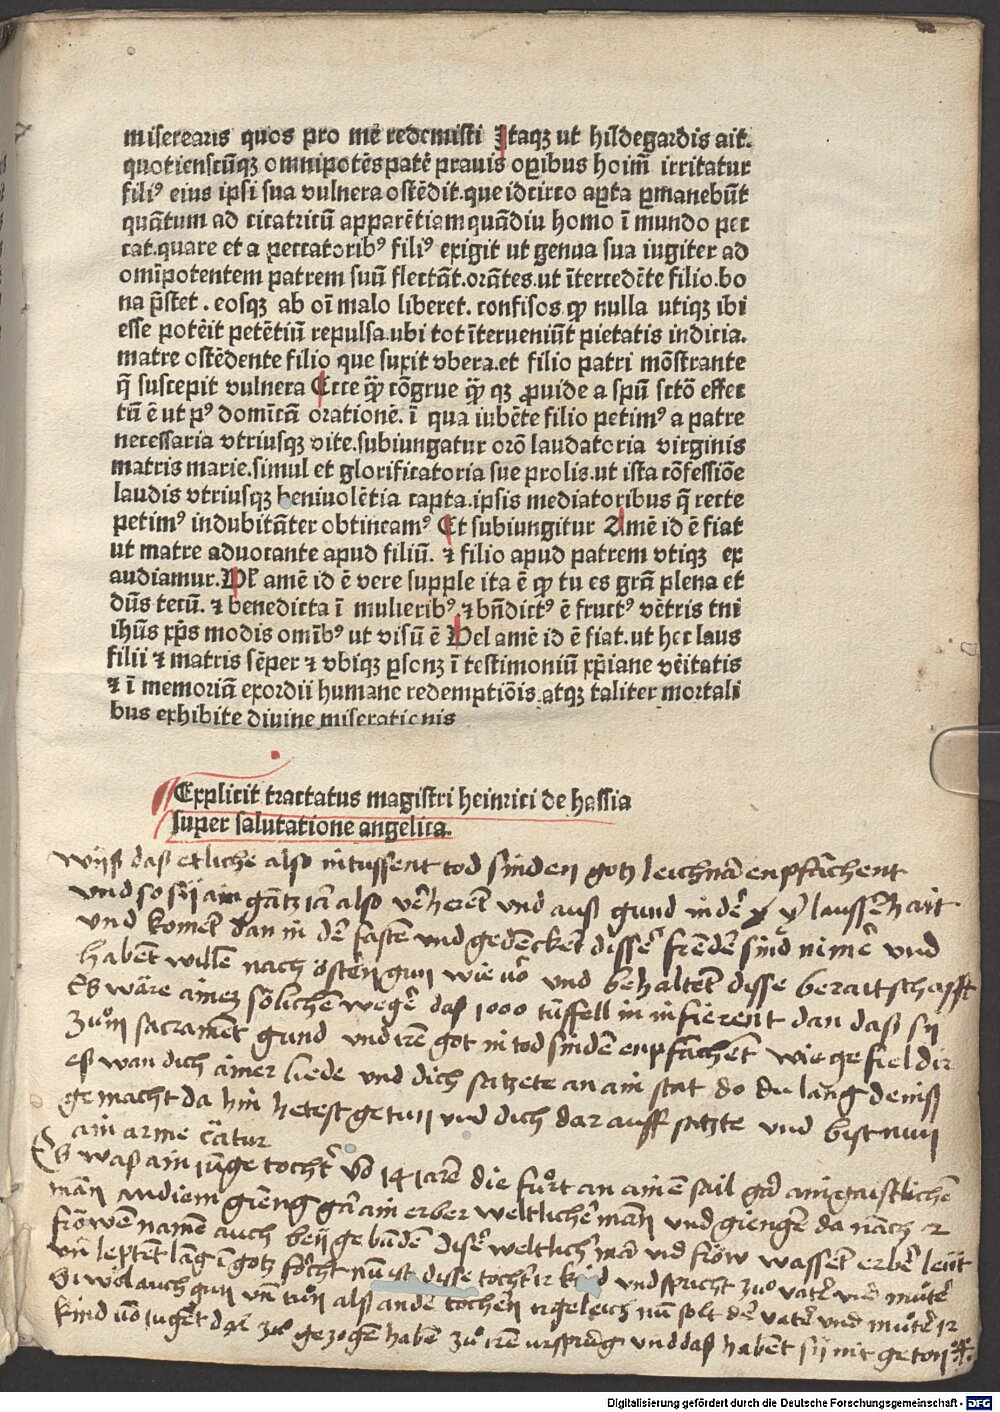 miserearis quos pro me redemisti Itaqꝫ ut hildegardis ait.
quotienscūqꝫ omnipotēs patē prauis oꝑibus hoim̄ irritatur
filiꝰ eius ipsi sua vulnera ostēdit. que idcirco aꝑta ꝑmanebūt
quātum ad cicatricū apparētiam quādiu homo ī mundo pec
cat. quare et a peccatoribꝰ filiꝰ exigit ut genua sua iugiter ad
omīpotentem patrem suū flectāt. orātes. ut ītercedēte filio. bo
na p̄stet . eosqꝫ ab oī malo liberet. confisos ꝙ nulla utiqꝫ ibi
esse potēit petētiū repulsa. ubi tot īterueniūt pietatis indicia.
matre ostēdente filio que suxit vbera. et filio patri mōstrante
q̄ suscepit vulnera Ecce qꝙ̄ cōgrue qꝙ̄ qꝫ ꝓuide a spū sctō effec
tū ē ut pꝰ domīcā orationē. ī qua iubēte filio petimꝰ a patre
necessaria vtriusqꝫ vite. subiungatur orō laudatoria virginis
matris marie. simul et glorificatoria sue prolis. ut ista cōfessiōe
laudis vtriusqꝫ beniuolētia capta. ipsis mediatoribus q̄ recte
petimꝰ indubitāter obtineamꝰ Et subiungitur Amē id ē fiat
ut matre aduocante apud filiū. ⁊ filio apud patrem vtiqꝫ ex
audiamur. Vl̄ amē id ē vere supple ita ē ꝙ tu es grā plena et
dūs tecū. ⁊ benedicta ī mulieribꝰ ⁊ bn̄dictꝰ ē fructꝰ vētris tui
ihūs xp̄s modis omībꝰ ut visū ē Vel amē id ē fiat. ut hec laus
filii ⁊ matris sēper ⁊ vbiqꝫ ꝑsonꝫ ī testimoniū xp̄iane vēitatis
⁊ ī memoriā exordii humane redemptiōis. atqꝫ taliter mortali
bus exhibite diuine miserationis
Explicit tractatus magistri heinrici de hassia
super salutatione angelica.
wyß daß etliche also in tussent tod sinden gotz leichnā enpfāchent
und so sy ain gātz iar also und auß gund in der
und komēt dan in der fasten und gedencket disser sind nimer und
habent willē nach östern wie vor und behaltet disse beraitschafft
Es wäre ainez sölichen weger daß 1000 tüffell in in fierent dan daß sy
zum sacramēt gund und iren got in tod sinden enpfāchēt wie gefiel dir
eß wan dich ainer liede und dich satzete an ain stat do du lāng
gemacht da hin hetest getun und dich dar auff satzte und bist nun
ain arme
Es waß ain iunge tochter 14 iaren die fuort an ainē sail ain gaistlichen
man gieng ain erber weltlicher man und giengē da nāch
fröwen namē auch bey gebunden diser weltlich man und fröw wassent erber leüt
lāng gotz forcht disse tochter und spricht zuo vater und muoter
wol auch tuon alß ander und solt der vater und muoter
kind iuget zuo gezogē habē zuo iren ursprūg und daß habent sy nit geton
Digitalisierung gefördert durch die Deutsche Forschungsgemeinschaft - DFG